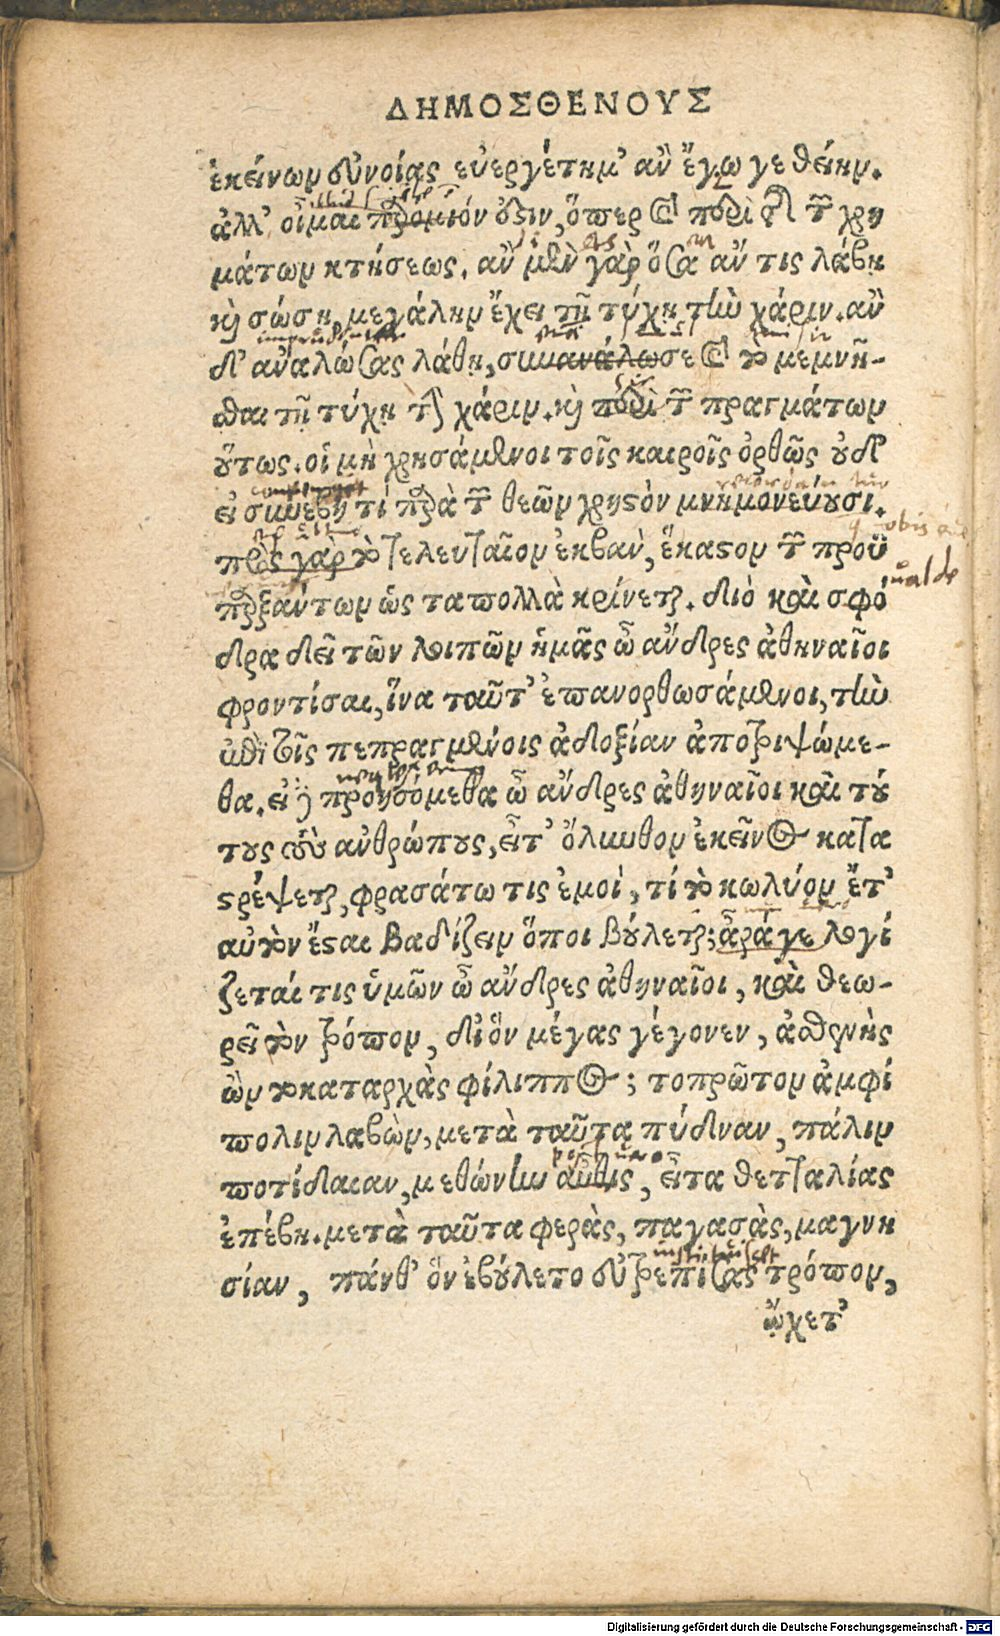 ΔΗΜΟΣΘΕΝΟΥΣ
ἐκείνων εὐνοίας εὐεργέτημ' ἂν ἔγωγε θείην.
ἀλλ' οἶμαι παρόμοιόν ὅξιν, ὅπερ καὶ περὶ τῆς τῶν χρη
μάτων κτήσεως. ἂν μὲν γὰρ ὅσα ἄν τις λάβῃ
καὶ σώσῃ, μεγάλην ἔχει τῇ τύχῃ τὴν χάριν. ἂν
δ' ἀναλώσας λάθῃ, συμανάλωσε καὶ τὸ μεμνῆ-
σθαι τῇ τύχῃ τὴν χάριν. καὶ περὶ τῶν πραγμάτων
οὕτως. οἱ μὴ χρησάμενοι τοῖς καιροῖς ὀρθῶς οὐδ'
εἰ συνέβη τί παρὰ τῶν θεῶν χρηστὸν μνημονεύουσι.
πρὸς γὰρ τὸ τελευταῖον ἐκβὰν, ἕκαστον τῶν προϋ
παρξάντων ὡς ταπολλὰ κρίνεται. διὸ καὶ σφό
valde
δρα δεῖ τῶν λοιπῶν ἡμᾶς ὦ ἄνδρες ἀθηναῖοι
φροντίσαι, ἵνα ταῦτ' ἐπανορθωσάμενοι, τὴν
ἐπὶ τοῖς πεπραγμένοις ἀδοξίαν ἀποτριψώμε-
θα. εἰ δὲ προησόμεθα ὦ ἄνδρες ἀθηναῖοι καὶ τού
τους τοὺς ἀνθρώπους, εἶτ' ὄλυνθον ἐκεῖνος κατα
στρέψεται, φρασάτω τις ἐμοὶ, τί τὸ κωλύον ἔτ'
αὐτὸν ἔσται βαδίζειν ὅποι βούλεται; ἆράγε λογί
ζεταί τις ὑμῶν ὦ ἄνδρες ἀθηναῖοι, καὶ θεω-
ρεῖ τὸν τρόπον, δι' ὃν μέγας γέγονεν, ἀσθενὴς
ὢν τὸ καταρχὰς φίλιππος; τοπρῶτον ἀμφί
πολιν λαβὼν, μετὰ ταῦτα πύδναν, πάλιν
ποτίδαιαν, μεθώνην αὖθις, εἶτα θετταλίας
ἐπέβη. μετὰ ταῦτα φερὰς, παγασὰς, μαγνη
σίαν, πάνθ' ὃν ἐβούλετο εὐτρεπίσας τρόπον,
ᾤχετ'
Digitalisierung gefördert durch die Deutsche Forschungsgemeinschaft - DFG